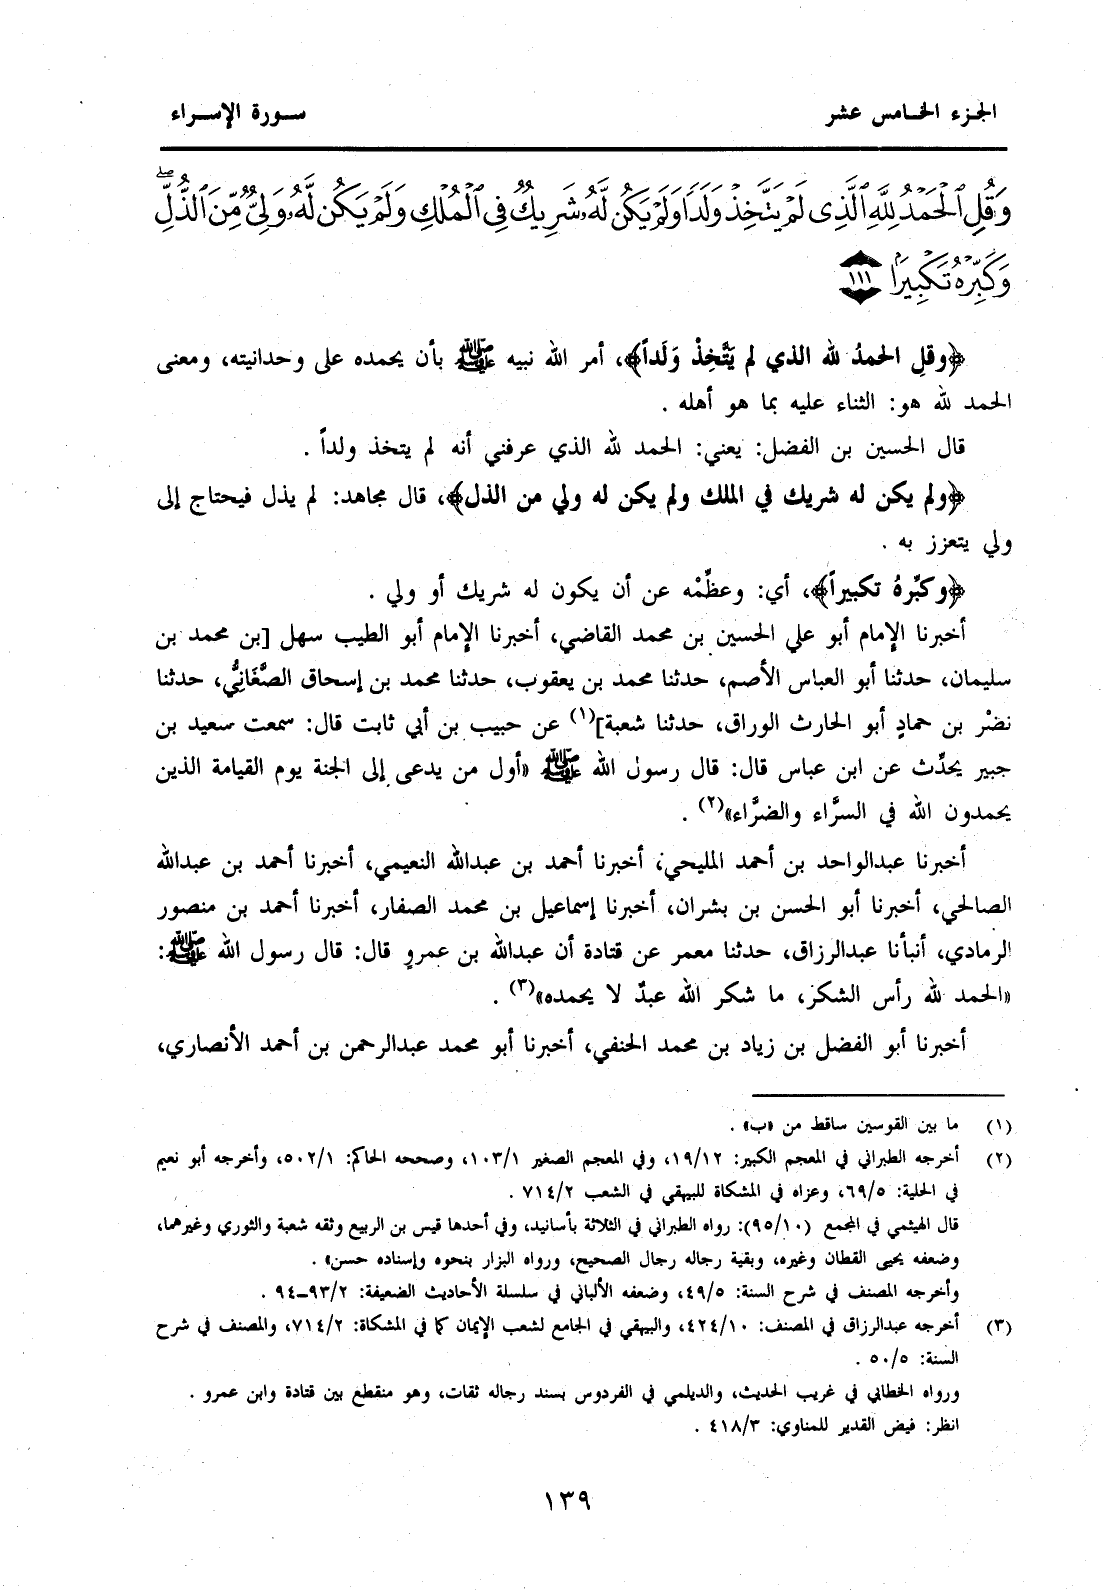 الجزء الخامس عشر
سورة الإسراء
وَقُلِ ٱلْحَمْدُ لِلَّهِ ٱلَّذِى لَمْ يَتَّخِذْ وَلَدًا وَلَمْ يَكُن لَّهُۥ شَرِيكٌ فِى ٱلْمُلْكِ وَلَمْ يَكُن لَّهُۥ وَلِىٌّ مِّنَ ٱلذُّلِّ ۖ
وَكَبِّرْهُ تَكْبِيرًۢا ١١١
﴿وقلِ الحمدُ لله الذي لم يَتَّخِذْ وَلَداً﴾، أمر الله نبيه ﷺ بأن يحمده على وحدانيته، ومعنى
الحمد لله هو: الثناء عليه بما هو أهله .
قال الحسين بن الفضل: يعني: الحمد لله الذي عرفني أنه لم يتخذ ولداً .
﴿ولم يكن له شريك في الملك ولم يكن له ولي من الذل﴾، قال مجاهد: لم يذل فيحتاج إلى
ولي يتعزز به .
﴿وكبِّرهُ تكبيراً﴾، أي: وعظِّمْه عن أن يكون له شريك أو ولي .
أخبرنا الإمام أبو علي الحسين بن محمد القاضي، أخبرنا الإمام أبو الطيب سهل [بن محمد بن
سليمان، حدثنا أبو العباس الأصم، حدثنا محمد بن يعقوب، حدثنا محمد بن إسحاق الصَّغَانِيُّ، حدثنا
نضْر بن حمادٍ أبو الحارث الوراق، حدثنا شعبة](١) عن حبيب بن أبي ثابت قال: سمعت سعيد بن
جبير يحدِّث عن ابن عباس قال: قال رسول الله ﷺ «أول من يدعى إلى الجنة يوم القيامة الذين
يحمدون الله في السرَّاء والضرَّاء»(٢) .
أخبرنا عبدالواحد بن أحمد المليحي، أخبرنا أحمد بن عبدالله النعيمي، أخبرنا أحمد بن عبدالله
الصالحي، أخبرنا أبو الحسن بن بشران، أخبرنا إسماعيل بن محمد الصفار، أخبرنا أحمد بن منصور
الرمادي، أنبأنا عبدالرزاق، حدثنا معمر عن قتادة أن عبدالله بن عمروٍ قال: قال رسول الله ﷺ:
«الحمد لله رأس الشكر، ما شكر الله عبدٌ لا يحمده»(٣) .
أخبرنا أبو الفضل بن زياد بن محمد الحنفي، أخبرنا أبو محمد عبدالرحمن بن أحمد الأنصاري،
(١) ما بين القوسين ساقط من «ب» .
(٢) أخرجه الطبراني في المعجم الكبير: ١٩/١٢، وفي المعجم الصغير ١٠٣/١، وصححه الحاكم: ٥٠٢/١، وأخرجه أبو نعيم
في الحلية: ٦٩/٥، وعزاه في المشكاة للبيهقي في الشعب ٧١٤/٢ .
قال الهيثمي في المجمع (٩٥/١٠): رواه الطبراني في الثلاثة بأسانيد، وفي أحدها قيس بن الربيع وثقه شعبة والثوري وغيرهما،
وضعفه يحيى القطان وغيره، وبقية رجاله رجال الصحيح، ورواه البزار بنحوه وإسناده حسن» .
وأخرجه المصنف في شرح السنة: ٤٩/٥، وضعفه الألباني في سلسلة الأحاديث الضعيفة: ٩٣/٢-٩٤ .
(٣) أخرجه عبدالرزاق في المصنف: ٤٢٤/١٠، والبيهقي في الجامع لشعب الإيمان كما في المشكاة: ٧١٤/٢، والمصنف في شرح
السنة: ٥٠/٥ .
ورواه الخطابي في غريب الحديث، والديلمي في الفردوس بسند رجاله ثقات، وهو منقطع بين قتادة وابن عمرو .
انظر: فيض القدير للمناوي: ٤١٨/٣ .
١٣٩